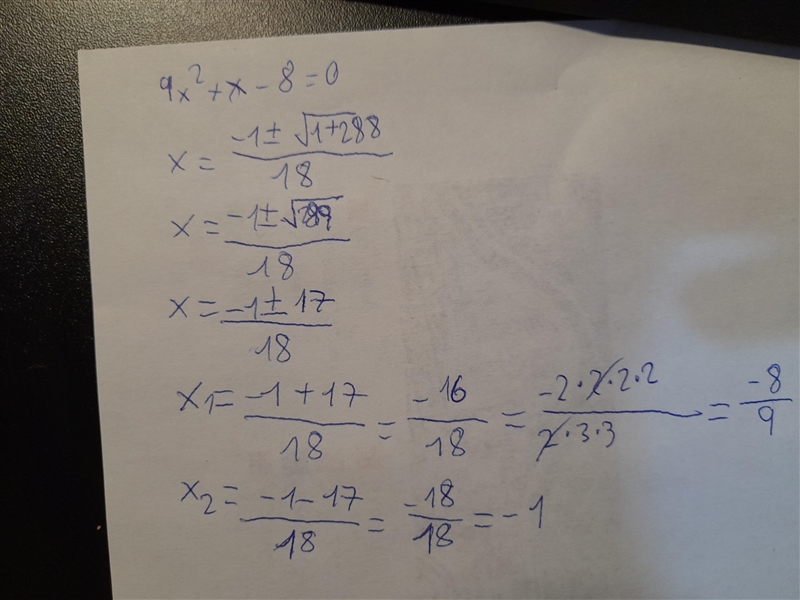 9x² + x - 8 = 0
x = (-1 ± √(1+288)) / 18
x = (-1 ± √289) / 18
x = (-1 ± 17) / 18
x1 = (-1 + 17) / 18 = -16 / 18 = (-2·2·2·2) / (2·3·3) = -8 / 9
x2 = (-1 - 17) / 18 = -18 / 18 = -1